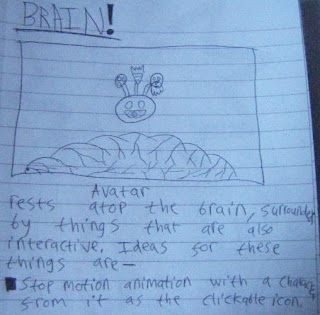 BRAIN!
Avatar
rests atop the brain, surrounded
by things that are also
interactive. Ideas for these
things are—
Stop motion animation with a
from it as the clickable icon.